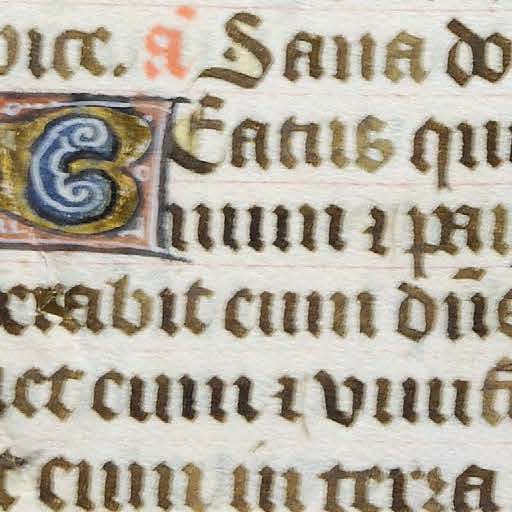 pice. a Sana do
BEatus qui
num ⁊ pau
erabit eum dñs
uet eum ⁊ viuifi
t eum in terra